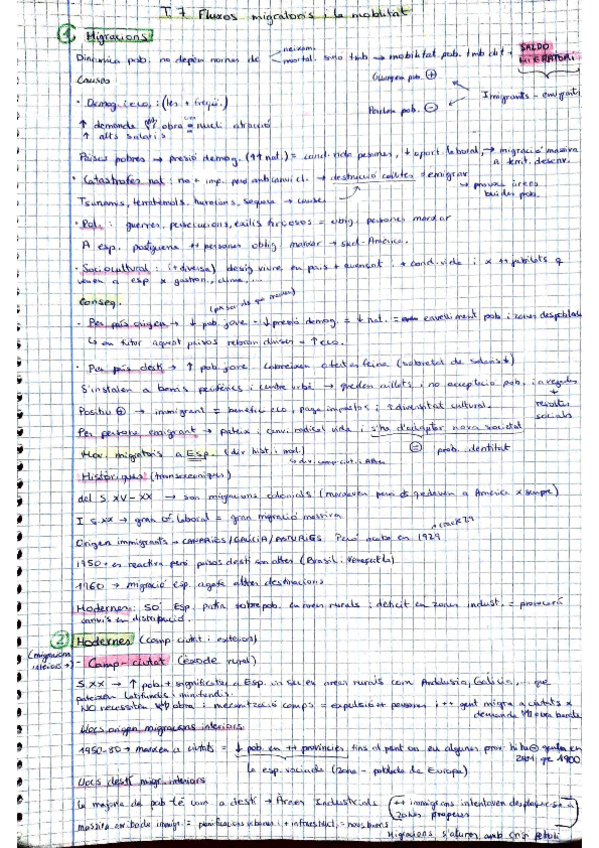 T.7 Fluxos migratoris i la mobilitat
1 Migracions
Dinamica pob. no depèn només de neixem. mortal. sino tmb → mobilitat pob. tmb dit → SALDO MIGRATORI
Guanyem pob. +
Imigrants - emigrants
Causes
Perdem pob. -
· Demog. i eco, : (les + freqü.)
↑ demanda obra = nucli atracció
↑ alts salaris
Països pobres → presió demog. (↑↑ nat.) = cond. vida pesimes, ↓ oport. laboral, → migració massiva a territ. desenv.
· Catastrofes nat : → destrucció = emigrar
→ provoca àrees buides pob.
Tsunamis, terratremols, huracans, sequera → causes
· Pol. : guerres, persecucions, exilis forçosos = oblig. persones marxar
A esp. postguerra ++ persones oblig. marxar → sud-Amèrica.
· Sociocultural : (+ diversa) desig viure en país + avençat i + cond. vida i x ++ jubilats q venen a esp x gastron., clima, ...
Conseq.
- Per país origen → ↓ pob. jove - ↓ presió demog. = ↓ nat. = envelliment pob i zones despoblades
↳ en futur aquest països rebran divises = ↑ eco.
· Per país destí → ↑ pob. jove. Cobreixen ofertes feina
S'instalen a barris perifèrics i centre urbà → queden aïllats, no acceptació pob. i a vegades → revoltes socials
Positiu + → immigrant = benefici eco, paga impostos i ↑ diversitat cultural.
Per persona emigrant → pateix i canvi radical vida i s'ha d'adaptar nova societat
= prob. identitat
Mov. migratoris a Esp. (div. hist. i mod.)
Històriques (transoceàniques)
del S. XV-XX → son migracions colonials (marxaven però es quedaven a Amèrica x sempre)
I S. XX → gran of. laboral = gran migració massiva
Origen immigrants → CANARIES/GALICIA/ASTURIES. Però acaba en 1929 → crack 29
1950 → es reactiva però països destí son altres (Brasil i Veneçuela)
1960 → migració esp. agafa altres destinacions
Modernes: 50' Esp. patia sobrepob. en àrees rurals i dèficit en zones indust. = provocarà canvis en distribució.
2 Modernes (camp ciutat i exteriors)
(migracions interiors →) - Camp-ciutat (èxode rural)
S. XX → ↑ pob. + significatiu a Esp. en àrees rurals com Andalusia, Galicia, ... que pateixen latifundis i minifundis.
NO necessiten obra i mecanització camps = expulsió persones i ++ gent migra a ciutats x demanda obra barata
Llocs origen migracions interiors
1950-80 → marxen a ciutats = ↓ pob. en ++ províncies fins al punt on en algunes prov. hi ha - gent en 2001 que 1900
La esp. vaciada (zona - poblada de Europa)
Llocs destí migr. interiors
La majoria de pob té com a destí → Àrees Industrials (++ immigrans intentaven desplaçar-se a zones properes
= perifèries urbanes i + infrastruct. = nous barris
Migracions s'aturen amb crisi petroli